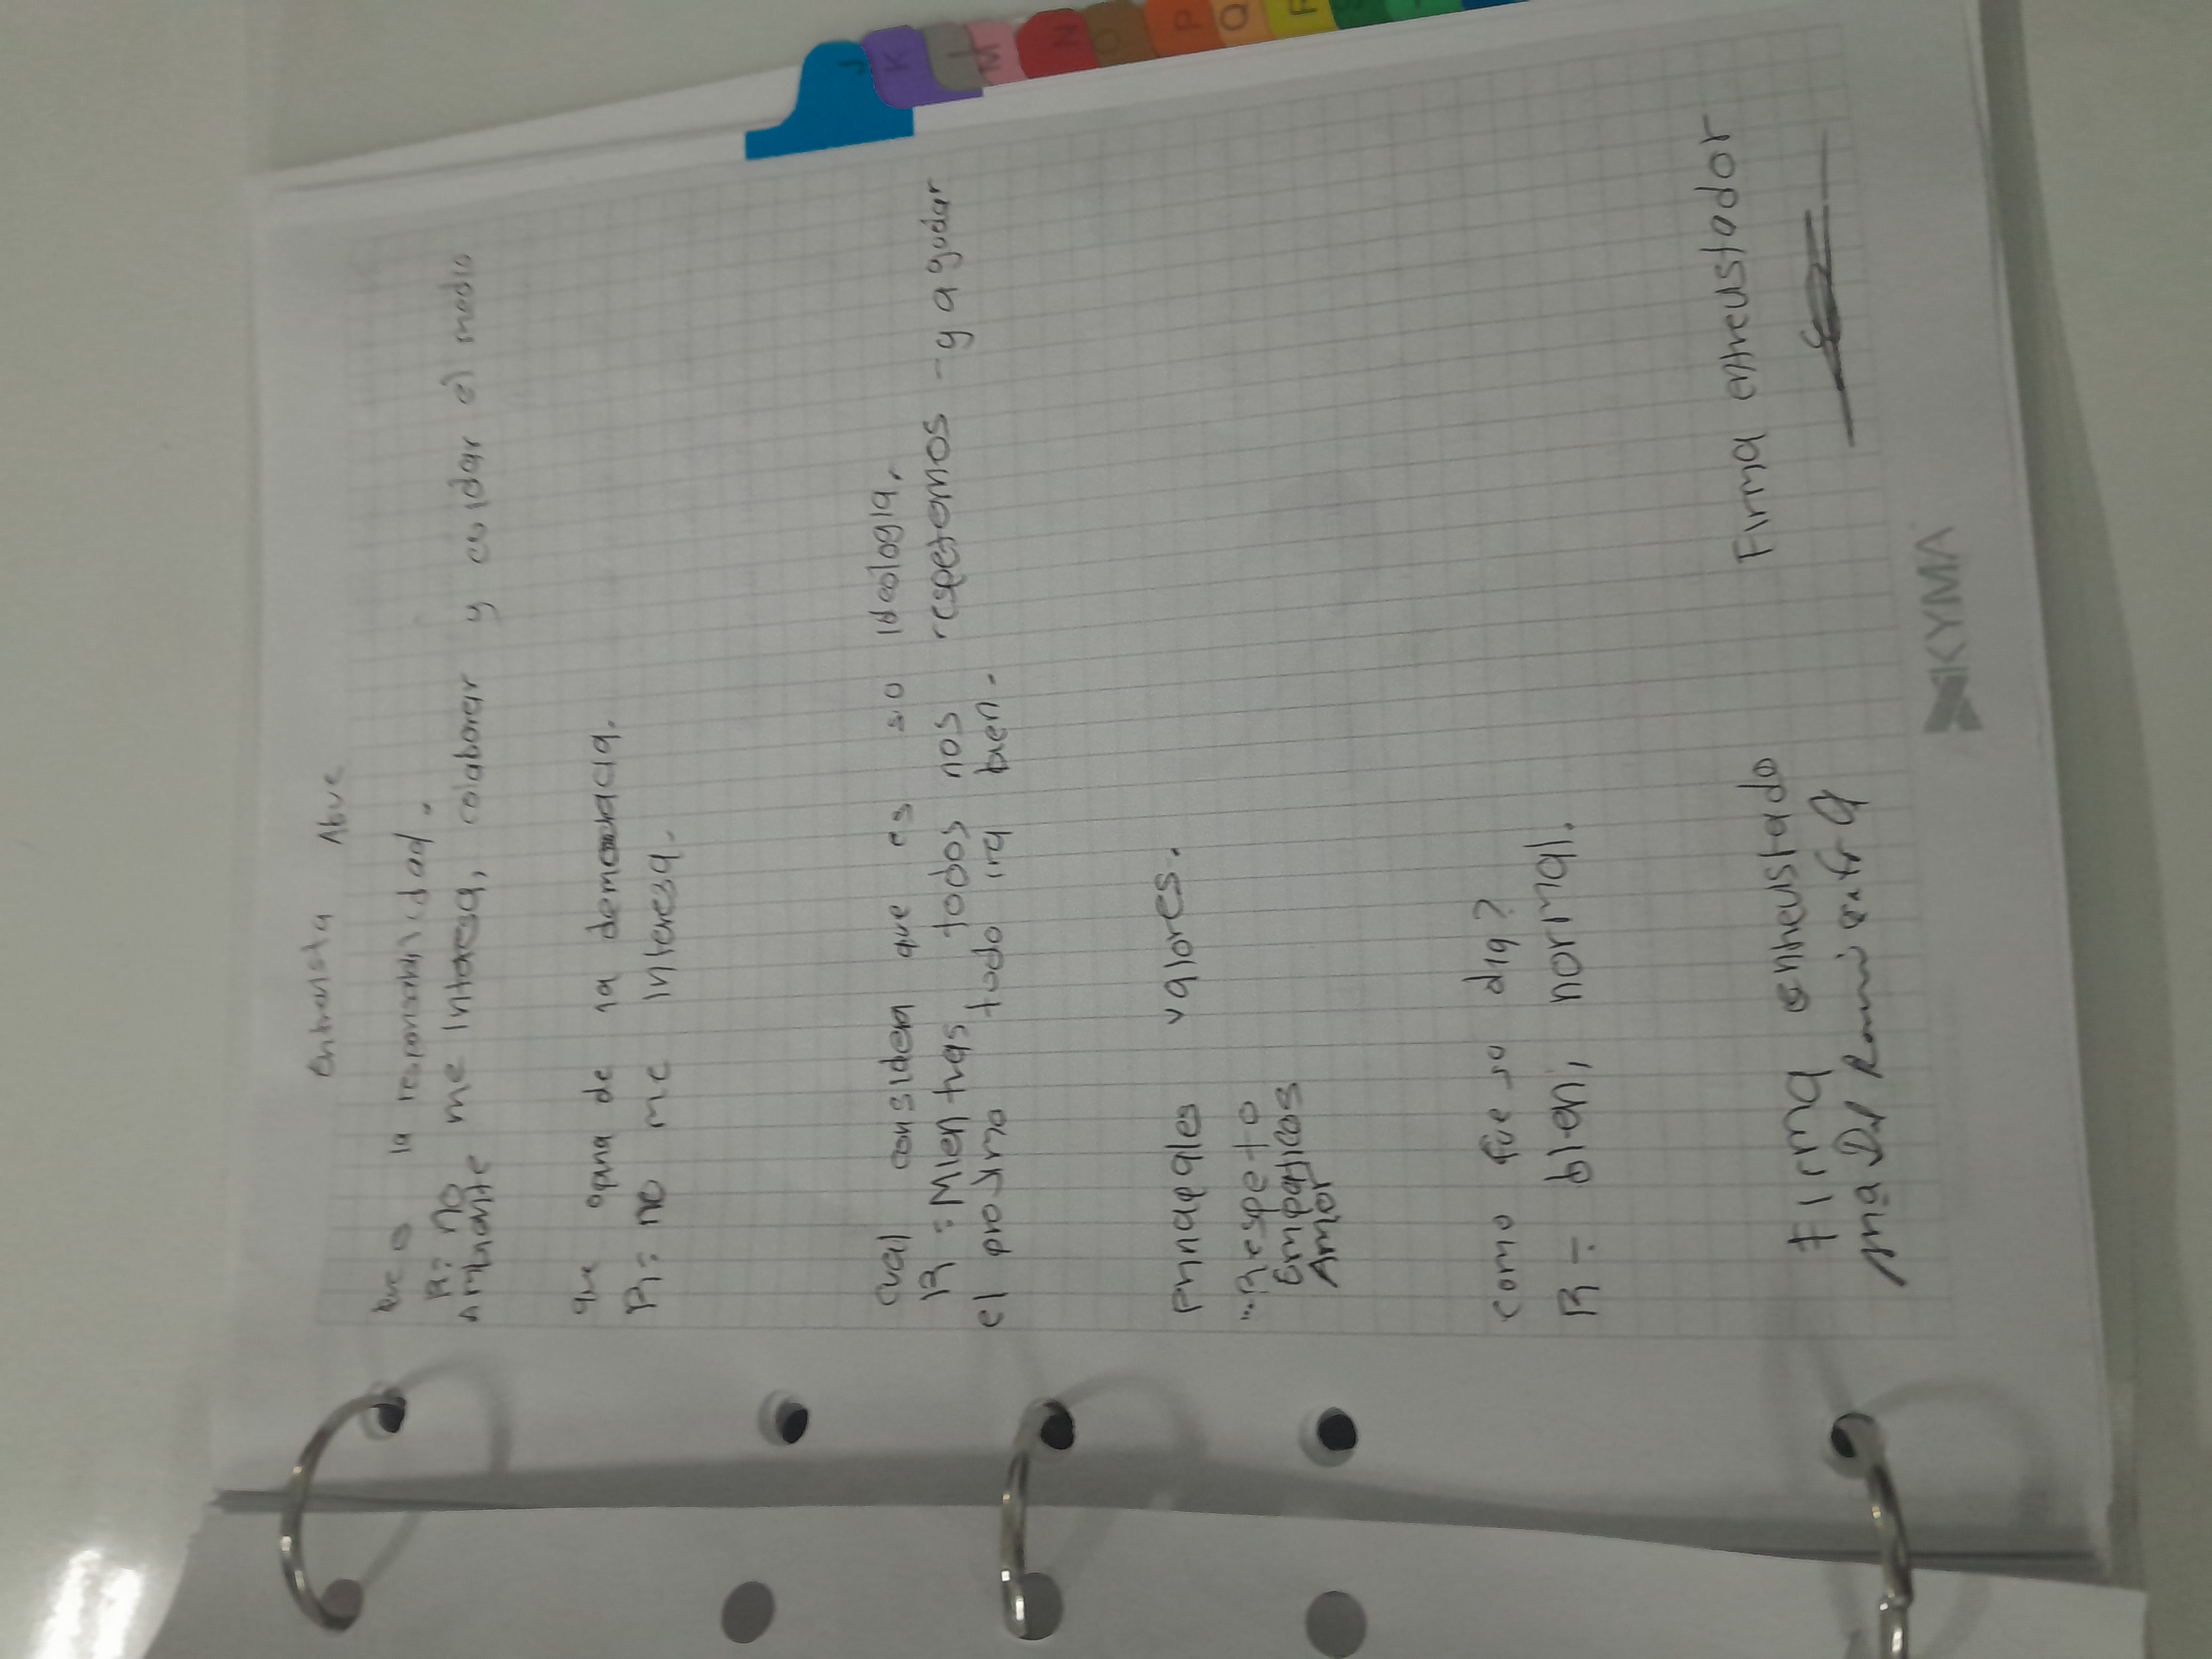 Entrevista Abue
Que es la responsabilidad.
R: no me interesa, colaborer y cuidar el medio
Ambiante
que opina de la democracia.
R: no me interesa.
cual considera que es su ideologia.
R: Mientras todos nos respetamos y ayudar
el proximo todo ira bien.
Principales valores.
Respeto
Empaticos
Amor
como fue su dia?
R: bien, normal.
Firma entrevistador
Firma entrevistado
Ma Del
KYMA
J
K
L
M
N
O
P
Q
R
S